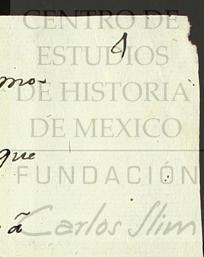 CENTRO DE
ESTUDIOS
DE HISTORIA
DE MEXICO
FUNDACIÓN
Carlos Slim
mo-
que
â